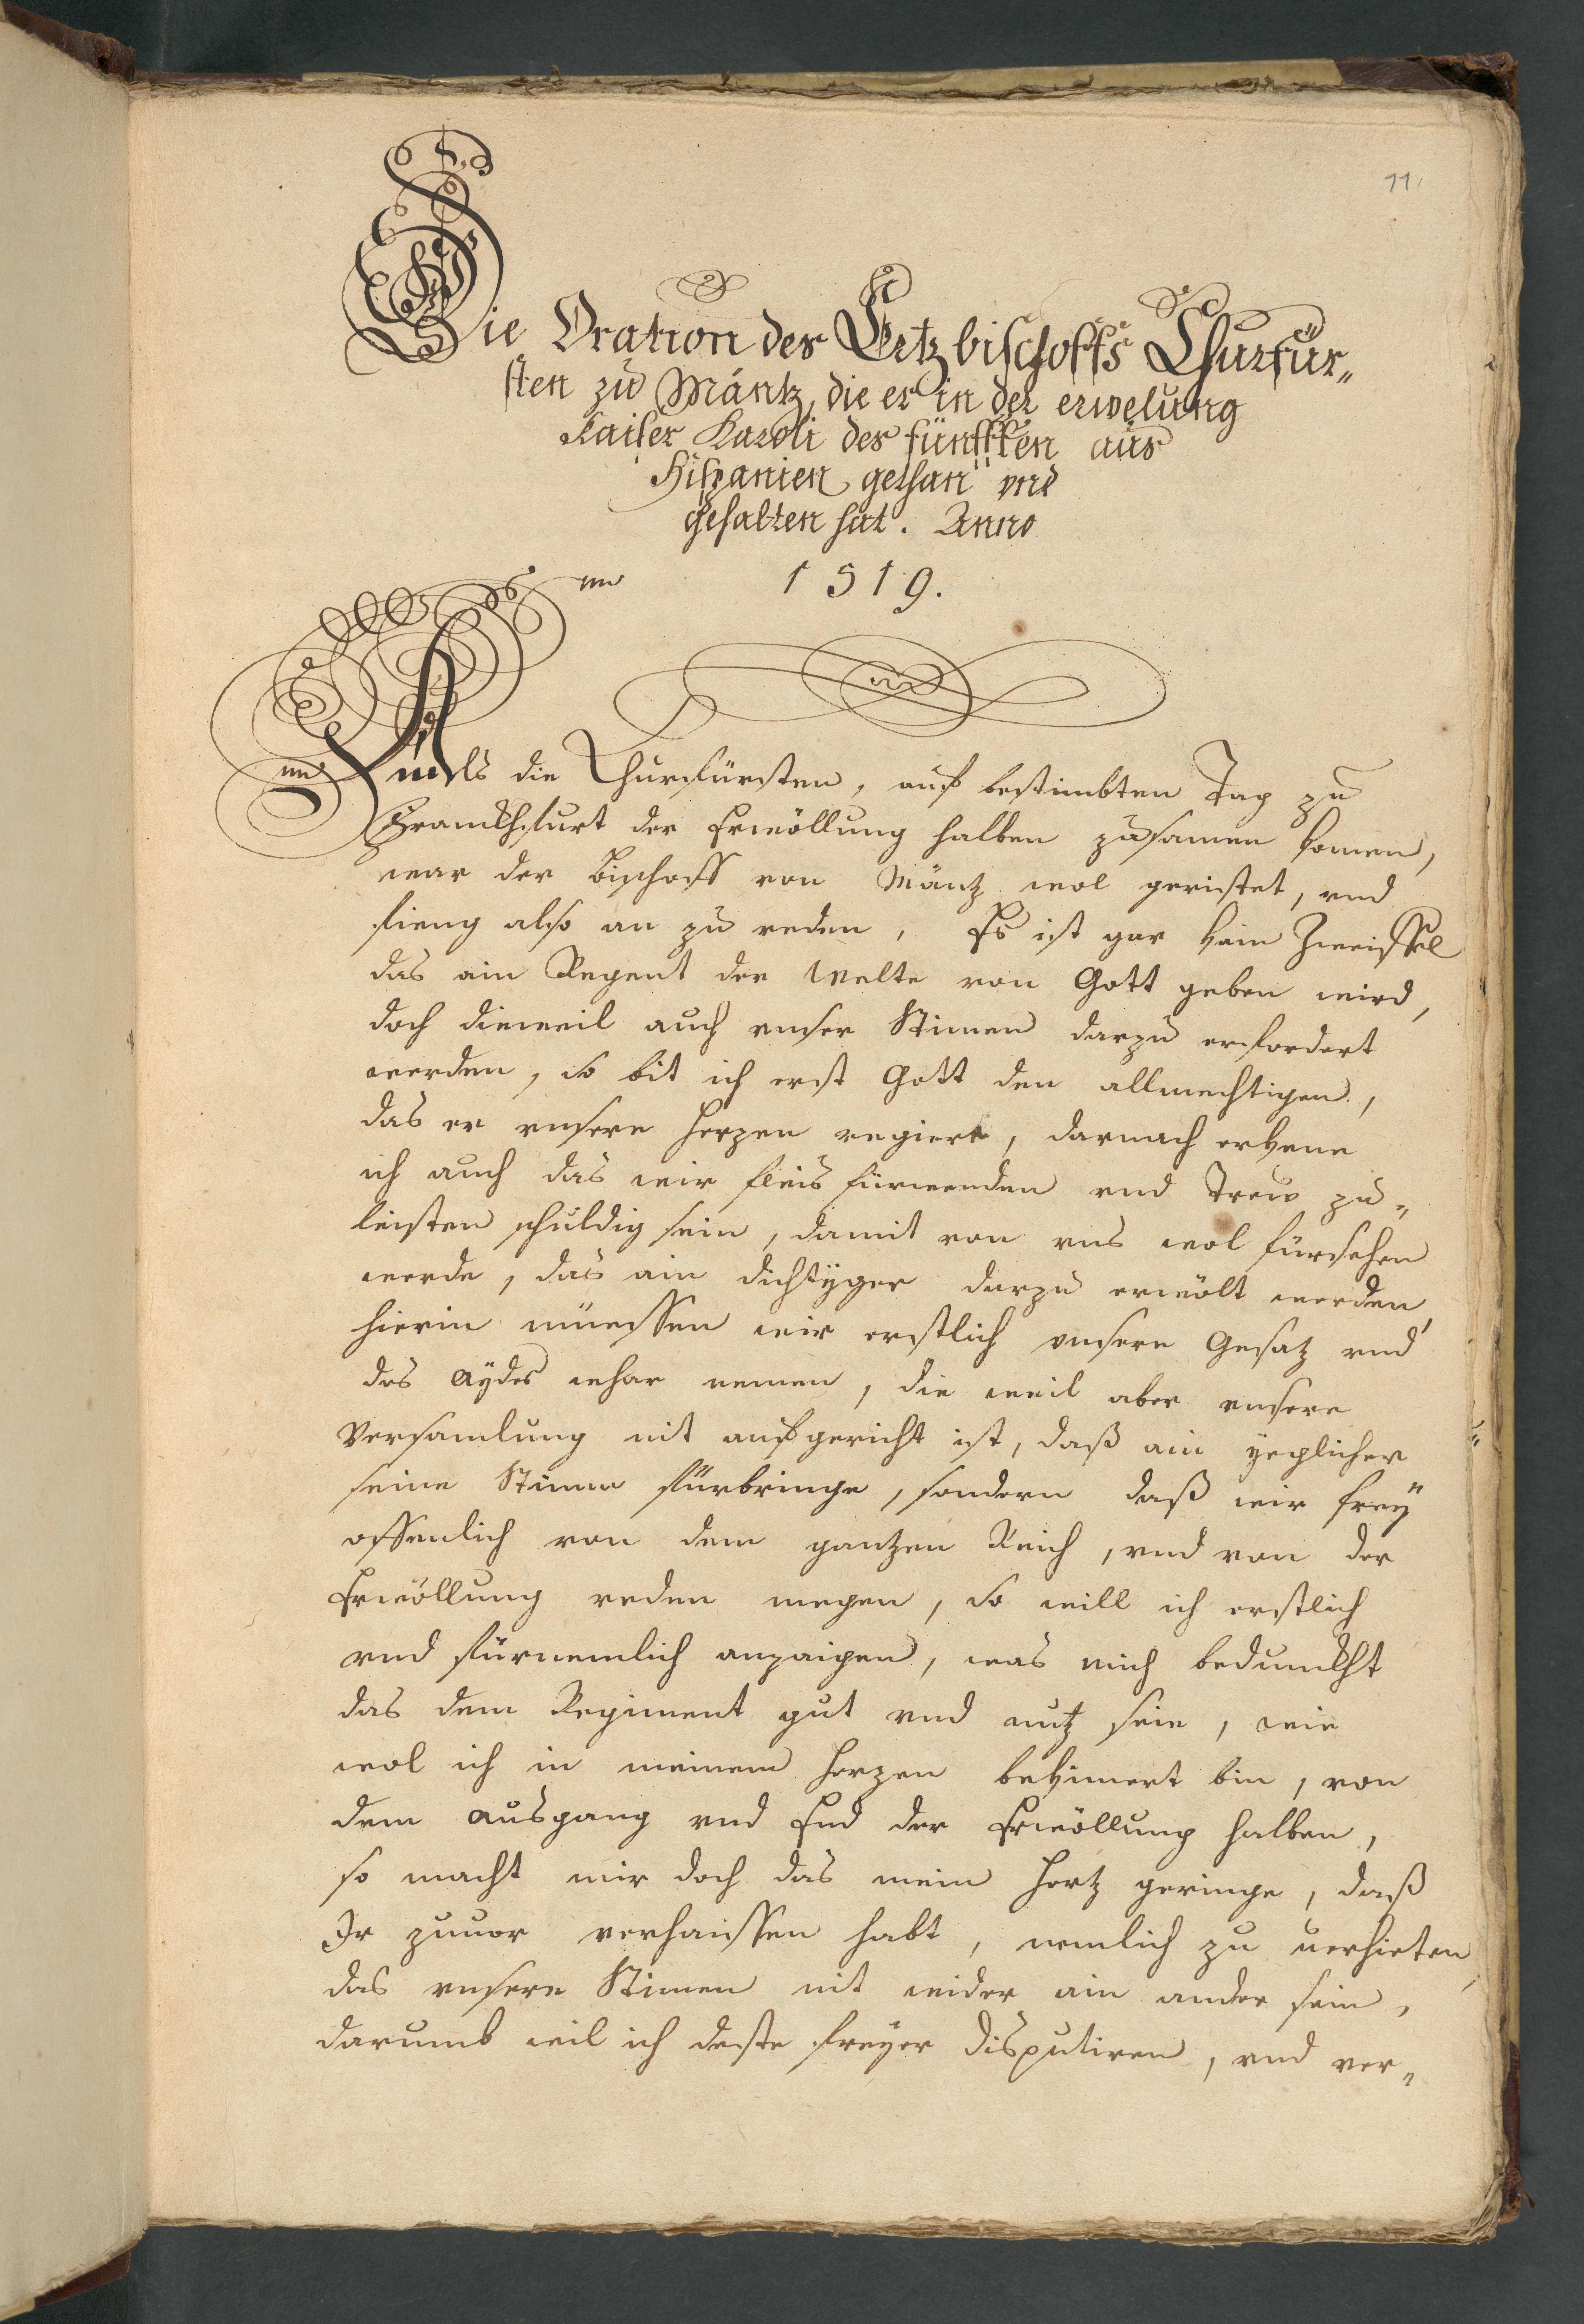 11.
Die Oration des Ertzbischoffs Churfür„
sten zu Mäntz, die er in der erwelung
Kaiser Karoli des fünfften aus
Hispanien gethan vnd
gehalten hat. Anno
1519.
Als die Churfürsten, auf bestimbten Tag zu
Franckhfurt der Erwöllung halben zusamen komen,
war der Bischoff von Mäntz wol geristet, vnd
fieng also an zu reden, Es ist gar kain Zweiffel
das ain Regent der Welte von Gott geben wird,
doch dieweil auch vnser Stimen darzu erfordert
werden, so bit ich erst Gott den allmechtigen,
das er vnsere herzen regiere, darnach erkene
ich auch das wir fleis fürwenden vnd Trew zu„
leisten schuldig sein, damit von vns wol fürsehen
werde, das ain dichtyger darzu erwölt werden,
hierin müessen wir erstlich vnsere Gesatz vnd
des Aydes whar nemen, die weil aber vnsere
Versamlung nit aufgericht ist, daß ain yeglicher
seine Stimme fürbringe, sondern daß wir frey
offenlich von dem gantzen Reich, vnd von der
Erwöllung reden megen, so will ich erstlich
vnd fürnemlich anzaigen, was mich bedunckht
das dem Regiment gut vnd nutz seie, wie
wol ich in meinem herzen bekimert bin, von
dem ausgang vnd End der Erwöllung halben,
so macht mir doch das mein hertz geringe, daß
Ir zuuor verhaissen habt, nemlich zu uerhieten,
das vnsere Stimen nit wider ain ander sein,
darumb wil ich deste freyer disputiren, vnd ver„